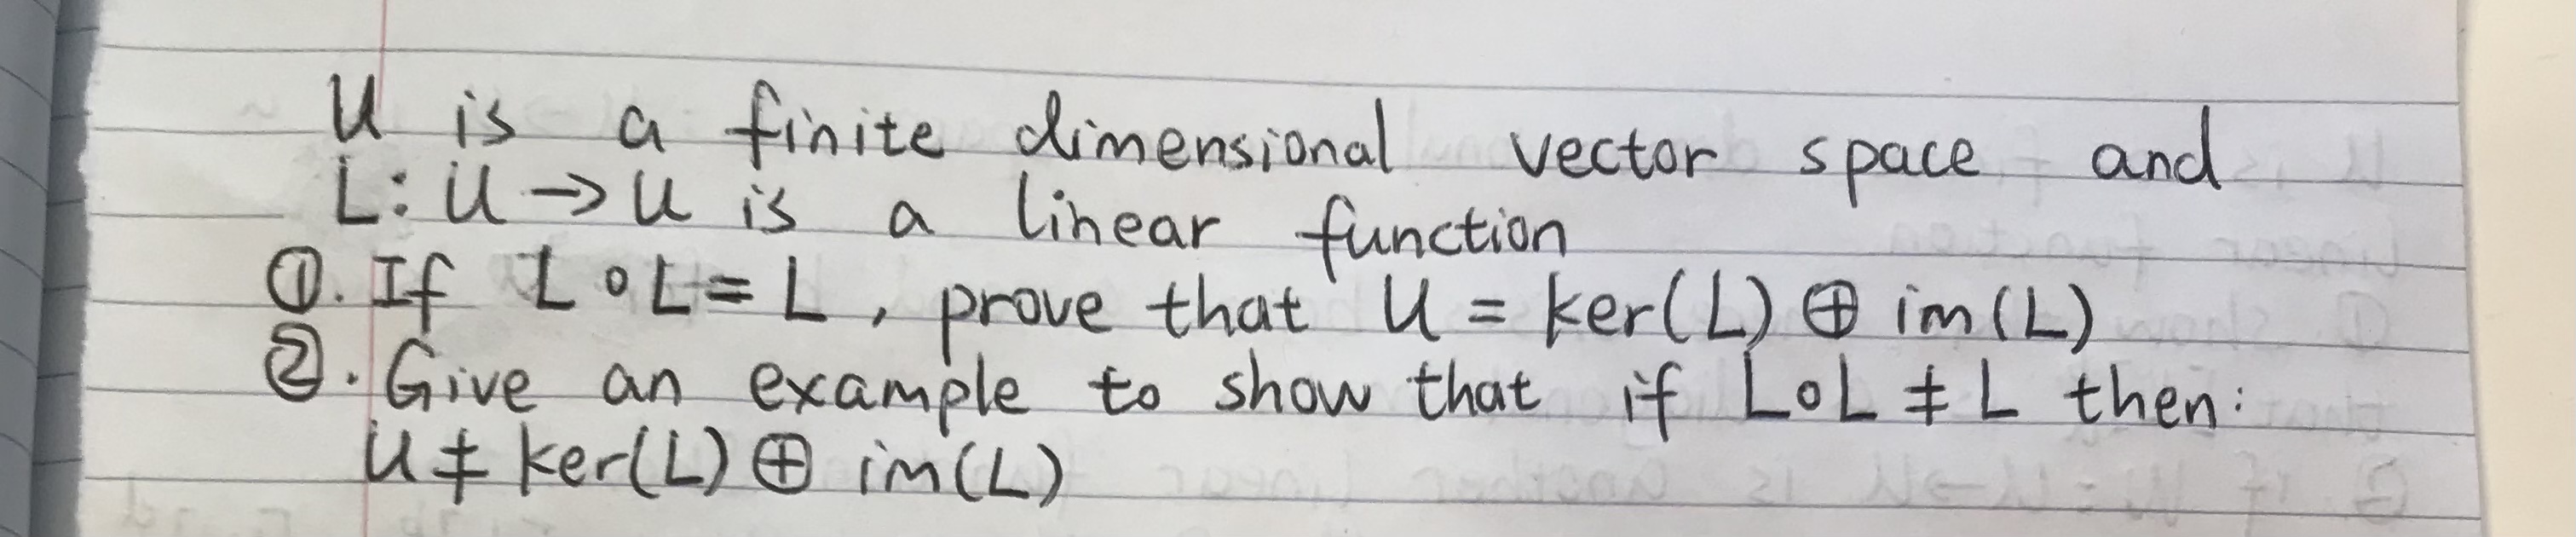 U is a finite dimensional vector space and
L: U → U is a linear function
①. If L ∘ L = L, prove that U = ker(L) ⊕ im(L)
②. Give an example to show that if L∘L ≠ L then:
U ≠ ker(L) ⊕ im(L)